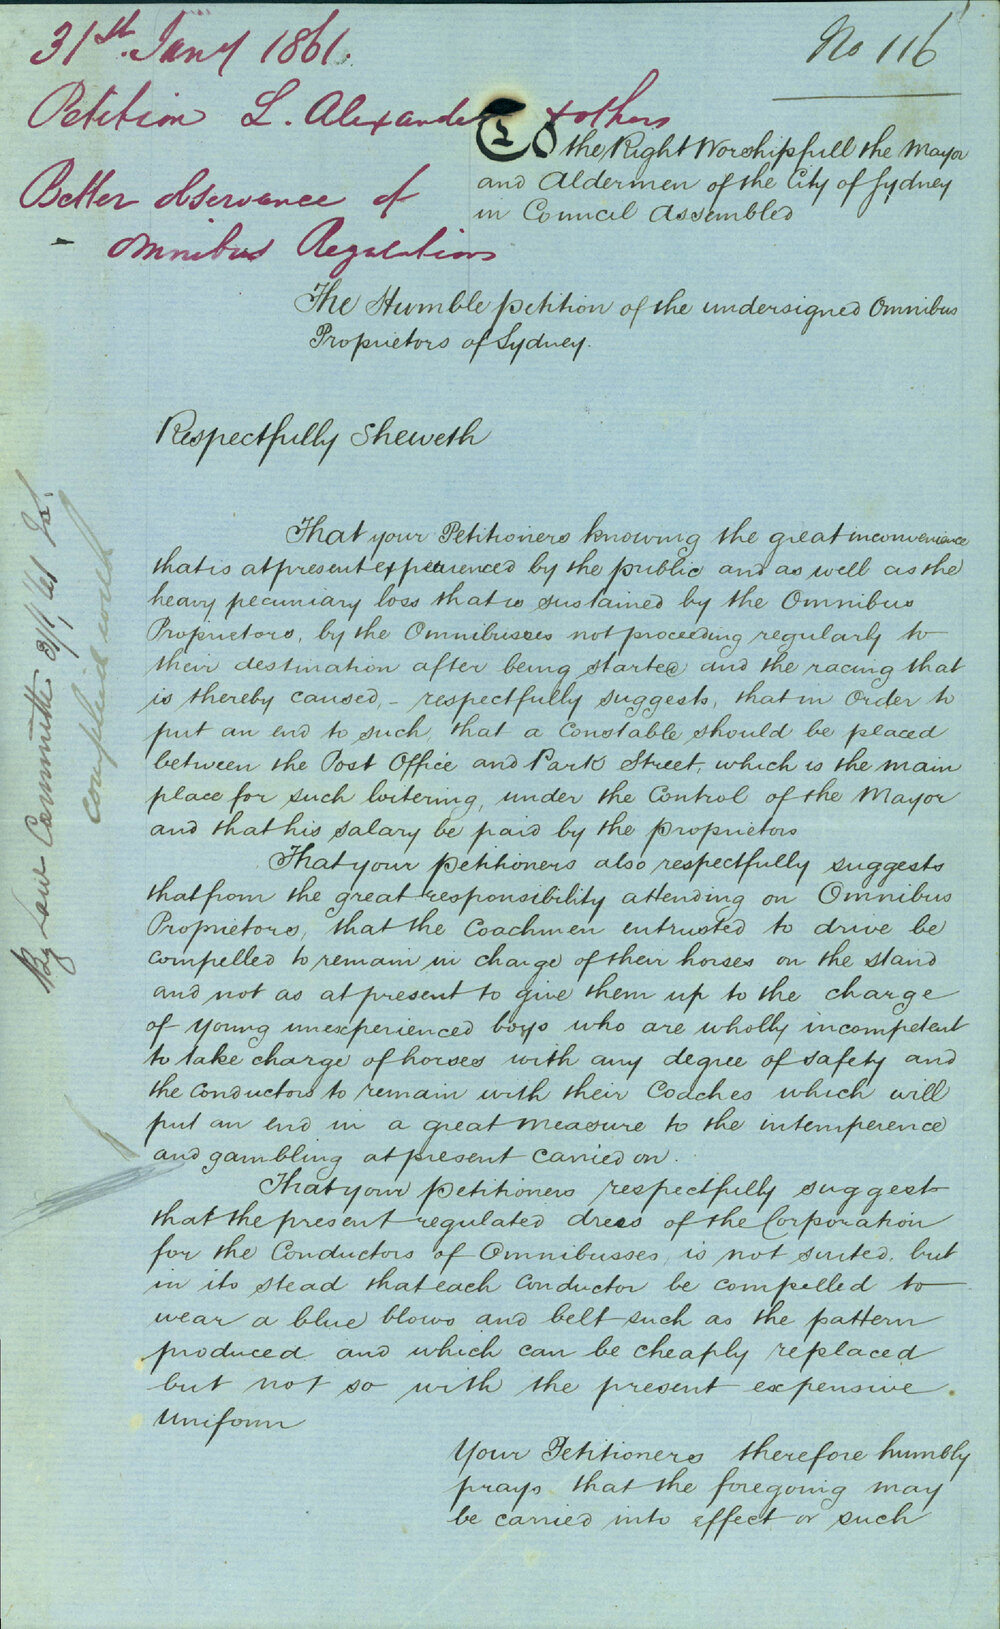 31st Jany 1861.
No 116
Petition L. Alexander & others
Better observance of
Omnibus Regulations
To the Right Worshipfull the Mayor
and Aldermen of the City of Sydney
in Council Assembled
The Humble petition of the undersigned Omnibus
Proprietors of Sydney.
Respectfully Sheweth
That your Petitioners knowing the great inconvenience
that is at present experienced by the public and as well as the
heavy pecuniary loss that is sustained by the Omnibus
Proprietors, by the Omnibusses not proceeding regularly to
their destination after being started and the racing that
is thereby caused, - respectfully suggests, that in order to
put an end to such, that a Constable should be placed
between the Post Office and Park Street, which is the main
place for such loitering, under the Control of the Mayor
and that his salary be paid by the proprietors
That your petitioners also respectfully suggests
that from the great responsibility attending on Omnibus
Proprietors, that the Coachmen entrusted to drive be
compelled to remain in charge of their horses on the stand
and not as at present to give them up to the charge
of young unexperienced boys who are wholly incompetent
to take charge of horses with any degree of safety and
the conductors to remain with their Coaches which will
put an end in a great measure to the intemperence
and gambling at present carried on.
That your petitioners respectfully suggest
that the present regulated dress of the Corporation
for the Conductors of Omnibusses, is not suited, but
in its stead that each conductor be compelled to
wear a blue blows and belt such as the pattern
produced and which can be cheaply replaced
but not so with the present expensive
uniform
Your Petitioners therefore humbly
prays that the foregoing may
be carried into effect or such
By Law Committee
complied with